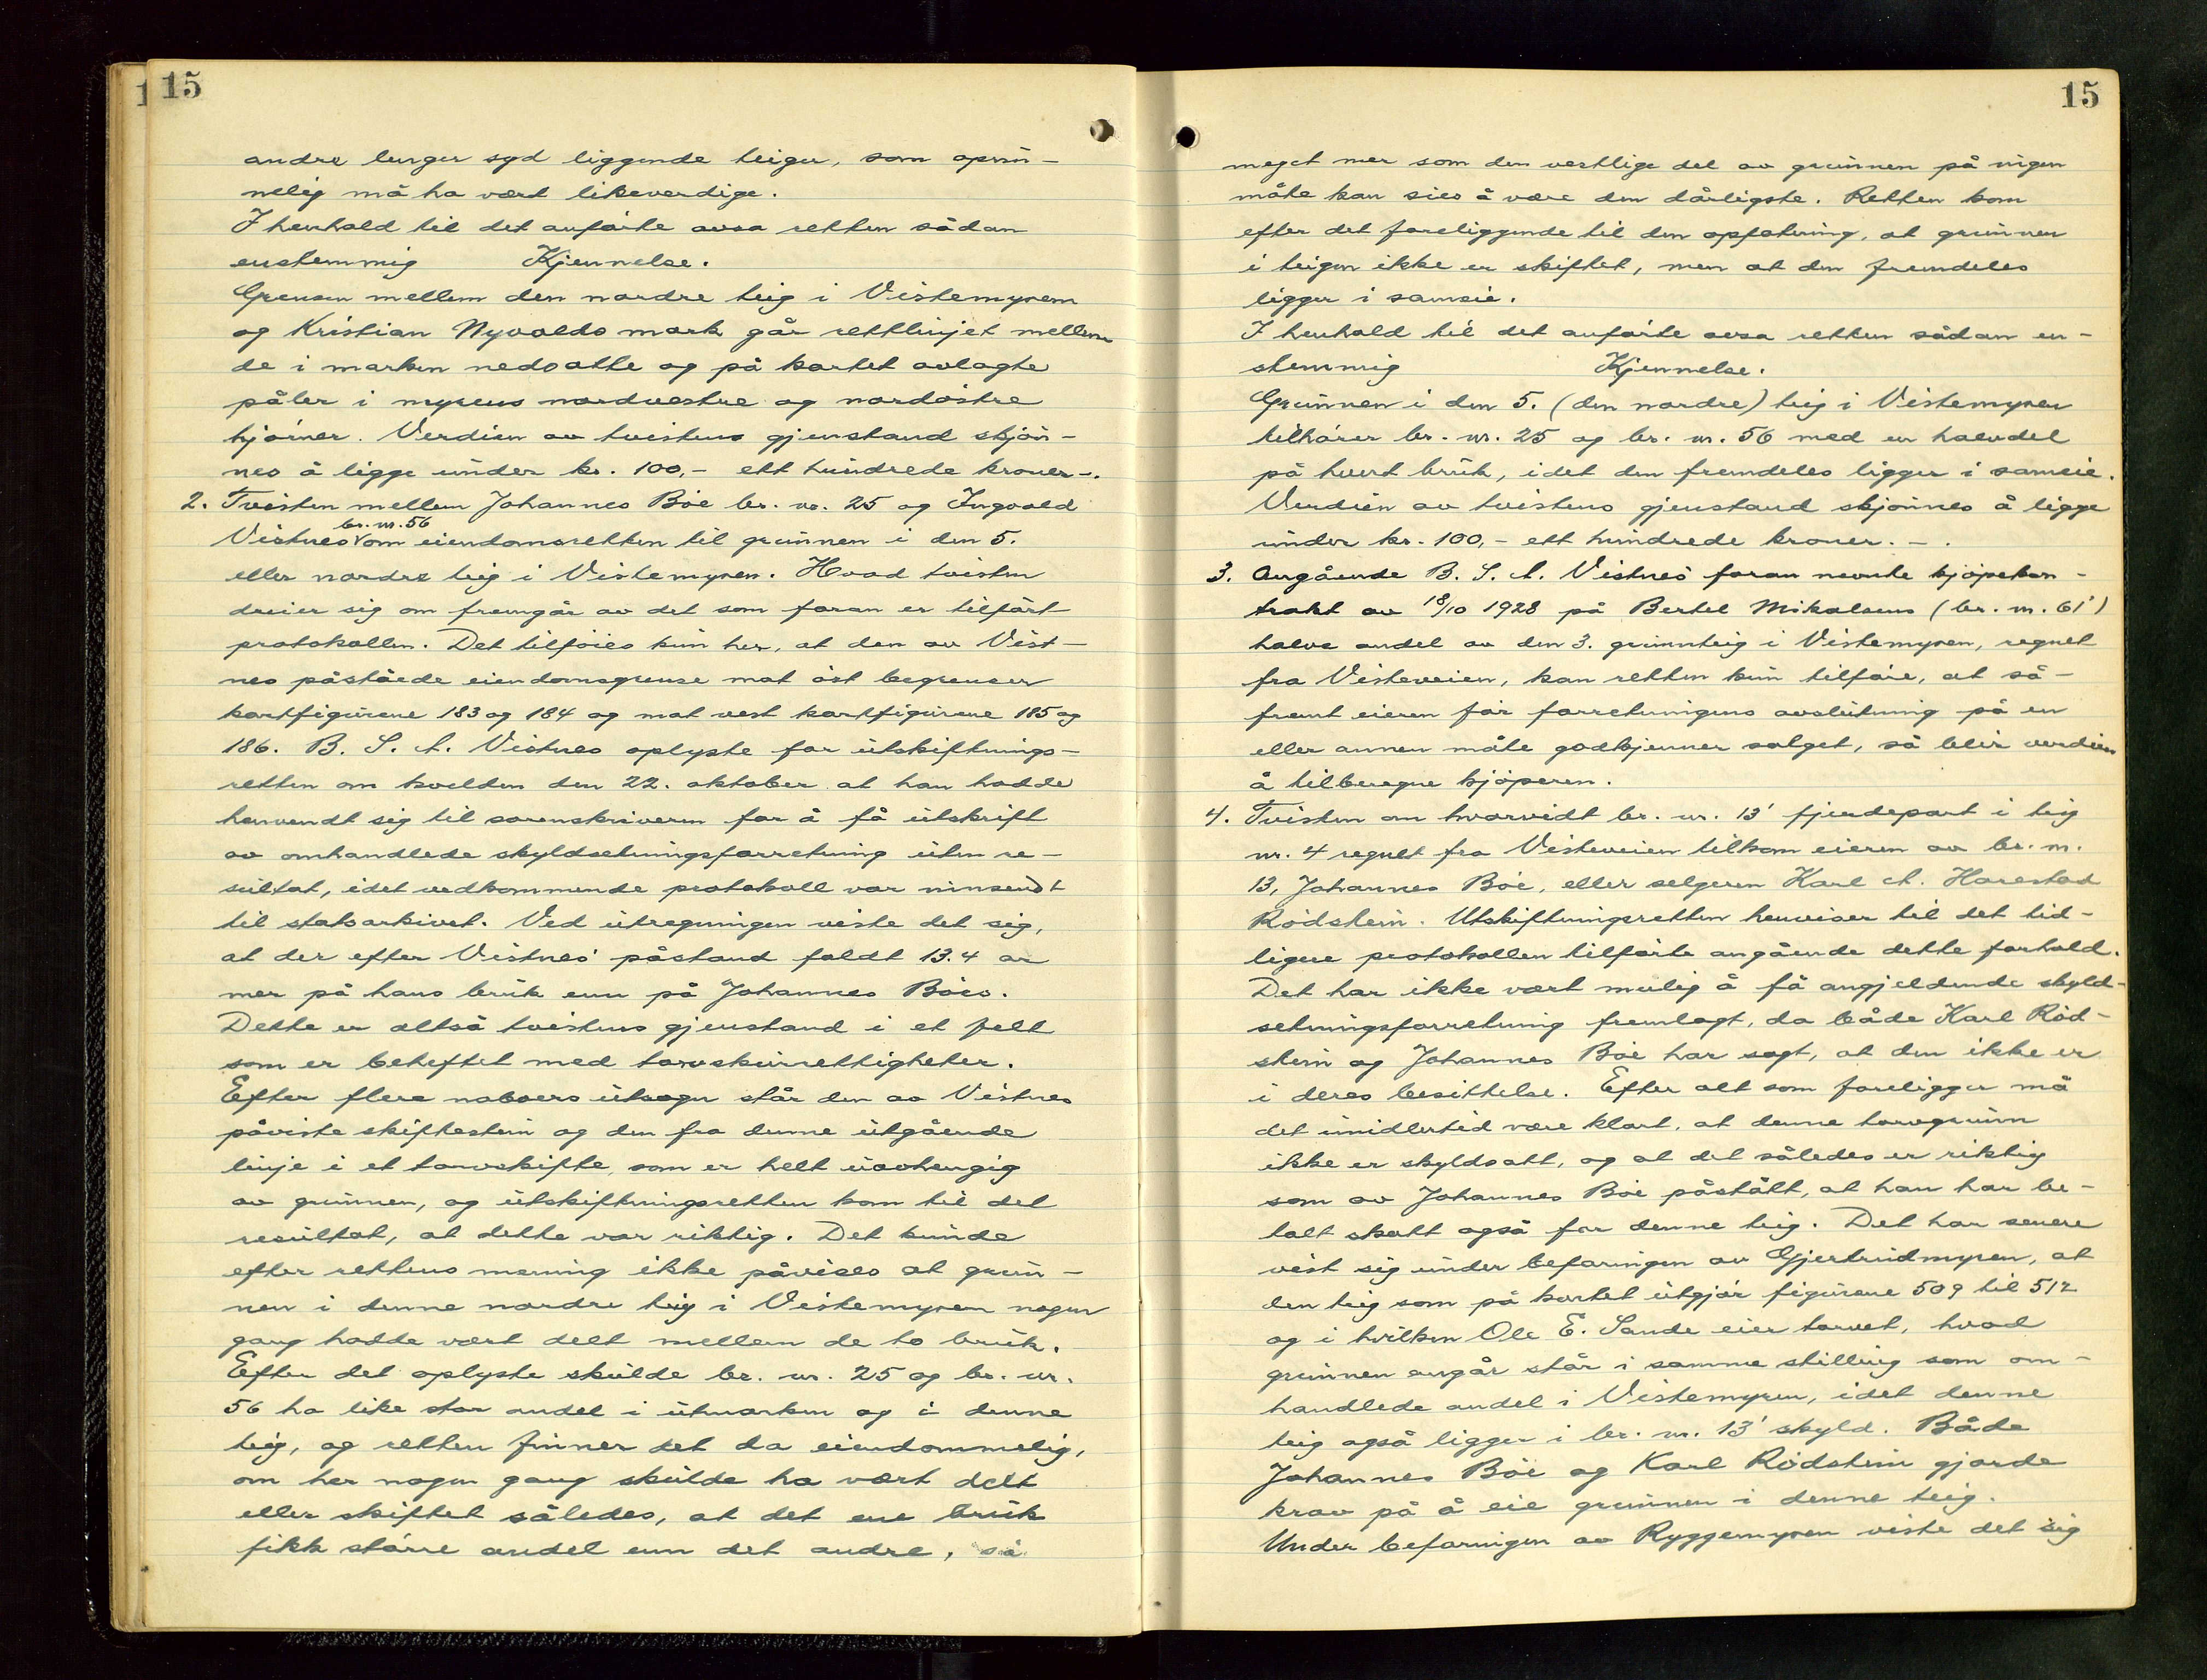 15
andre lenger syd liggende teiger, som oprin-
nelig må ha vært likeverdige.
I henhold til det anførte avsa retten sådan
enstemmig Kjennelse.
Grensen mellem den nordre teig i Vistemyren
og Kristian Nyvolds mark går rettlinjet mellem
de i marken nedsatte og på kartet avlagte
påler i myrens nordvestre og nordøstre
hjørner. Verdien av tvistens gjenstand skjøn-
nes å ligge under kr. 100,- ett hundrede kroner-.
2. Tvisten mellem Johannes Bøe br. nr. 25 og Ingvald
br. nr. 56
Vistnes om eiendomsretten til grunnen i den 5.
eller nordre teig i Vistemyren. Hvad tvisten
dreier sig om fremgår av det som foran er tilført
protokollen. Det tilføies kun her, at den av Vist-
nes påståede eiendomsgrense mot øst begrenser
kartfigurene 183 og 184 og mot vest kartfigurene 185 og
186. B. S. A. Vistnes oplyste for utskiftnings-
retten om kvelden den 22. oktober at han hadde
henvendt sig til sorenskriveren for å få utskrift
av omhandlede skyldsetningsforretning uten re-
sultat, idet vedkommende protokoll var innsendt
til statsarkivet. Ved utregningen viste det sig,
at der efter Vistnes' påstand faldt 13.4 ar
mer på hans bruk enn på Johannes Bøes.
Dette er altså tvistens gjenstand i et felt
som er beheftet med torvskurrettigheter.
Efter flere naboers utsagn står den av Vistnes
påviste skiftestein og den fra denne utgående
linje i et torvskifte, som er helt uavhengig
av grunnen, og utskiftningsretten kom til det
resultat, at dette var riktig. Det kunde
efter rettens mening ikke påvises at grun-
nen i denne nordre teig i Vistemyren nogen
gang hadde vært delt mellem de to bruk.
Efter det oplyste skulde br. nr. 25 og br. nr.
56 ha like stor andel i utmarken og i denne
teig, og retten finner det da eiendommelig,
om her nogen gang skulde ha vært delt
eller skiftet således, at det ene bruk
fikk større andel enn det andre, så
15
meget mer som den vestlige del av grunnen på ingen
måte kan sies å være den dårligste. Retten kom
efter det foreliggende til den opfatning, at grunnen
i teigen ikke er skiftet, men at den fremdeles
ligger i sameie.
I henhold til det anførte avsa retten sådan en-
stemmig Kjennelse.
Grunnen i den 5. (den nordre) teig i Vistemyren
tilhører br. nr. 25 og br. nr. 56 med en halvdel
på hvert bruk, idet den fremdeles ligger i sameie.
Verdien av tvistens gjenstand skjønnes å ligge
under kr. 100,- ett hundrede kroner. - .
3. Angående B. S. A. Vistnes' foran nevnte kjøpekon-
trakt av 18/10 1928 på Bertel Mikalsens (br. nr. 61')
halve andel av den 3. grunnteig i Vistemyren, regnet
fra Visteveien, kan retten kun tilføie, at så-
fremt eieren før forretningens avslutning på en
eller annen måte godkjenner salget, så blir verdien
å tilberegne kjøperen.
4. Tvisten om hvorvidt br. nr. 13' fjerdepart i teig
nr. 4 regnet fra Visteveien tilkom eieren av br. nr.
13, Johannes Bøe, eller selgeren Karl A. Harestad
Rødstein. Utskiftningsretten henviser til det tid-
ligere protokollen tilførte angående dette forhold.
Det har ikke vært mulig å få angjeldende skyld-
setningsforretning fremlagt, da både Karl Rød-
stein og Johannes Bøe har sagt, at den ikke er
i deres besittelse. Efter alt som foreligger må
det imidlertid være klart, at denne torvgrunn
ikke er skyldsatt, og at det således er riktig
som av Johannes Bøe påstått, at han har be-
talt skatt også for denne teig. Det har senere
vist sig under befaringen av Gjertrudmyren, at
den teig som på kartet utgjør figurene 509 til 512
og i hvilken Ole E. Sande eier torvet, hvad
grunnen angår står i samme stilling som om-
handlede andel i Vistemyren, idet denne
teig også ligger i br. nr. 13' skyld. Både
Johannes Bøe og Karl Rødstein gjorde
krav på å eie grunnen i denne teig.
Under befaringen av Ryggemyren viste det sig